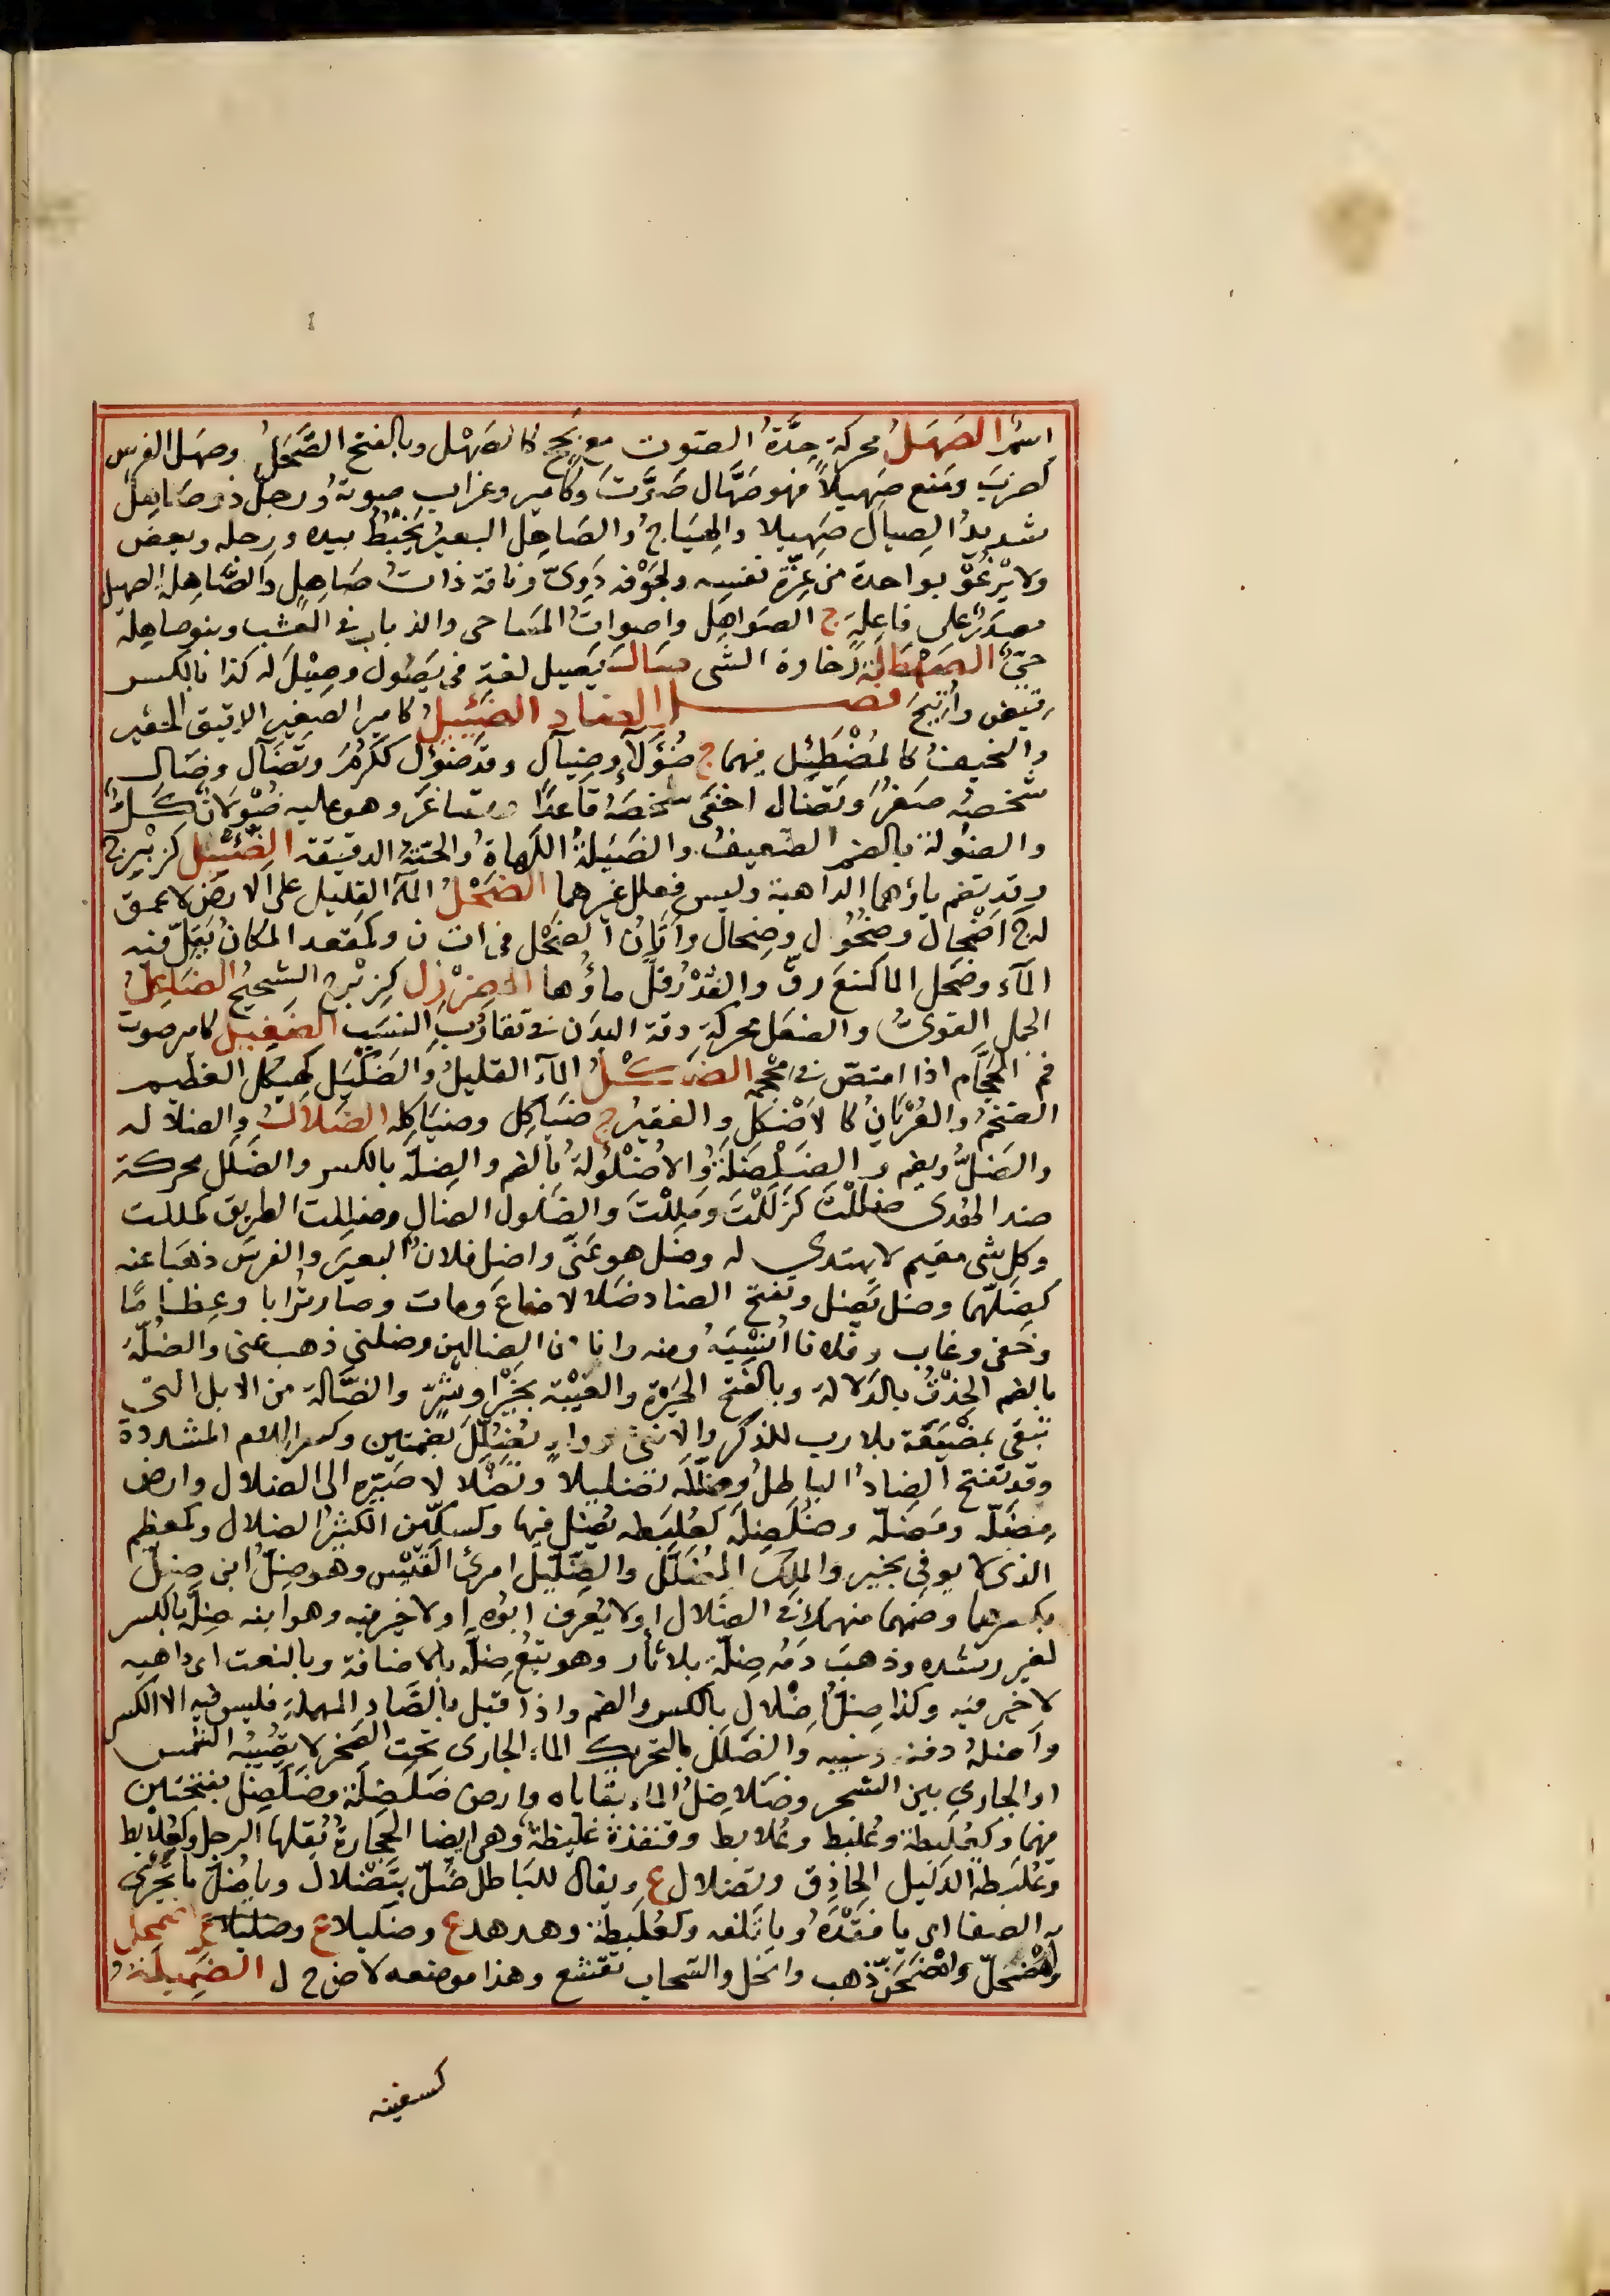 اسْمٌ الصَهَلُ محركة حِدَّةُ الصَوت مع بَحَحٍ كالصَهْل وبالفتح الصَّحَلُ وصهل الفرس
كضربَ ومَنع صَهيلاً فهو صَهَّال صَوَّتَ وكامير وغراب صوتهُ ورجلٌ ذو صَاهِلٍ
شديدُ الصِيال صَهيلا والهيَاجِ والصَاهِل البعيرُ يَخْبِطُ بيده ورجله ويعض
ولا يَرْغُو بواحدة من عِزَّة نفسه ولجَوْفه دَوىّ وناقة ذاتُ صَاهِلٍ والصَّاهِلة الصهيل
مصدَرٌ على فاعِلةٍ ج الصوَاهِل واصواتُ المسَاحى والذباب فى العشب وبنوصاهلة
حىّ الصَهْطَلَةُ رخاوة الشى صالَ يَصيل لغة فى يَصُول وصِيْلَ له كذا بالكسر
قيض واُتيحَ فصل الضاد الضَئِيلُ كامير الصغير الدقيق الحقير
والنحيفُ كالمُضْطَئِل فيهما ج ضُؤَلآء وضِئال وقد ضَؤل ككَرُمَ وتضآل وضال
شخصَه صغرَ وتضاءل اخفى شخصَهُ قاعدًا وتصاغرَ وهو عليه ضُؤْلان كَلٌّ
والضؤلة بالضم الضعيفُ والضَئيلةُ اللَهاةُ والحيَّةُ الدقيقة الضِئْبِل كزئْبِر
وقد تضم باؤهما الداهية وليس فعلل غيرهما الضَحْلُ المآء القليل على الارض لا عمق
له ج اَضْحال وضحُول وضِحال واَتانُ الضَحْل فى ات ن وكمقعد المكانُ يَقِلّ فيه
المآء وضَحل الما كمنعَ رقّ والغُدْرُ قلّ ماؤُها الضِرْزِل كزبْرِج الشحيحُ الضَاعِلُ
الجمل القوىُّ والضعَل محركة دقة البدَن فى تقارُبِ النسَب الضَغيل كامير صوت
فم الحجَّام اذا امتصّ فى مِحْجمه الضَكْلُ المآء القليلُ والضَيْكل كهيكل العظيم
الضخمُ والعُرْيانُ كالاَضْكل والفقيرُ ج ضيَاكِل وضيَاكِله الضَلالُ والضلاله
والضَلُّ ويضم والضَلْضَلَةُ والاُضْلُولَة بالضم والضِلَّة بالكسر والضَلَل محركة
ضد الهُدى ضَلَلْتَ كزَلَلْتَ ومَلِلْتَ والضَلول الضال وضللت الطريق كمللت
وكل شى مقيم لا يهتدى له وضل هو عَنّى واضل فلان البعيرَ والفرسَ ذهبَا عنه
كضلّهما وضل يَضِل وتفتح الضاد ضلالا ضاعَ ومات وصار تُرابا وعِظامًا
وخفى وغاب وفلانا اُنْسِيَهُ ومنه وانا من الضالين وضلنى ذهب عنى والضُلّة
بالضم الحِذْقُ بالدَلالة وبالفتح الحَيْرَة والغَيْبَة بخَيْرٍ او شَرٍّ والضَّالة من الابل التى
تبقى بمضيَعَة بلا رب للذكر والانثى ووادى تُضُلِّلَ بضمتين وكسر اللام المشددة
وقد تفتح الضادُ الباطلُ وضَلَّلَه تضليلا وتَضْلالا صَيَّره الى الضلال وارض
مِضَلّة ومَضلّة وضُلَضِلَة كعُلَبِطه يُضَل فيها وكسكّين الكثيرُ الضلال وكمعظم
الذى لا يوفق بخير والملِكُ المُضَلَّل والضِلّيل امرئ القَيْس وهو ضِلُّ ابن ضِلّ
بكسرهما وضمهما منهمكٌ فى الضلال او لا يُعرف ابُوه او لا خير فيه وهو ابنه ضِلّة بالكسر
لغير رشده وذهبَ دَمُه ضِلّة بلا ثأر وهو تِبْع ضِلَّةٍ بالاضافة وبالنعت اى داهيه
لا خير فيه وكذا ضِلّ اَضْلال بالكسر والضم واذا قيل بالصَّاد المهملة فليس فيه الا الكسر
واَضلهُ دفنه وغيبه والضَلَلُ بالتحريك الماء الجارى تحت الصَخر لا يُصيبُه الشمس
او الجارى بين الشجر وضَلاضِلُ الماء بقاياه وارض ضَلَضِلَة وضَلَضِل بفتحتين
فيهما وكعُلَبِطة وعُلَبِط وعُلابط وقنفذة غليظة وهى ايضا الحجارة يُقلها الرجل وكعُلابط
وعُلَبَطه الدَليل الحاذق وتضلال ع ويقال للباطل ضُلّ بتَضْلال ويا ضُلّ ما تجرى
به العصا اى يا فقْدَهُ ويا تَلفه وكعُلَبِطة وهدهد ع وضليلا ع اضمحل
وامْضَحَلّ واضْمَحَنّ ذهب وانحَل والسّحاب تقشع وهذا موضعه لا ض ح ل الضَميلةُ
كسفينه